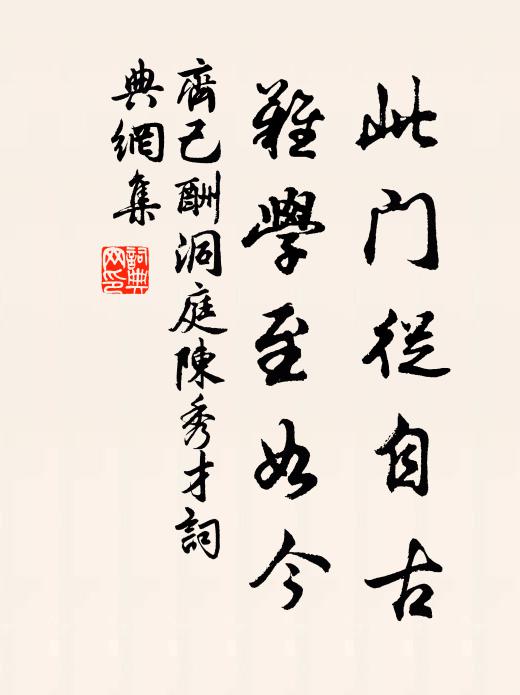 此门從自古
難學至如今
齊己酬洞庭陳秀才詞
典網集
詞典
网印